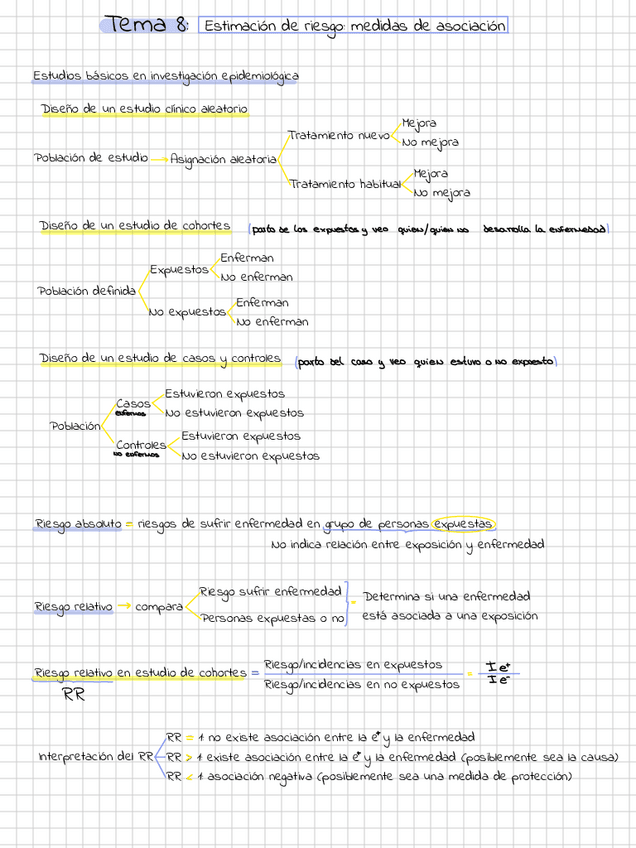 Tema 8: Estimación de riesgo: medidas de asociación
Estudios básicos en investigación epidemiológica
Diseño de un estudio clínico aleatorio
Población de estudio → Asignación aleatoria
Tratamiento nuevo
Mejora
No mejora
Tratamiento habitual
Mejora
No mejora
Diseño de un estudio de cohortes (parto de los expuestos y veo quien/quien no desarrolla la enfermedad)
Población definida
Expuestos
Enferman
No enferman
No expuestos
Enferman
No enferman
Diseño de un estudio de casos y controles (parto del caso y veo quien estuvo o no expuesto)
Población
Casos
enfermos
Estuvieron expuestos
No estuvieron expuestos
Controles
no enfermos
Estuvieron expuestos
No estuvieron expuestos
Riesgo absoluto = riesgos de sufrir enfermedad en grupo de personas expuestas
No indica relación entre exposición y enfermedad
Riesgo relativo → compara
Riesgo sufrir enfermedad
Personas expuestas o no
= Determina si una enfermedad
está asociada a una exposición
Riesgo relativo en estudio de cohortes = Riesgo/incidencias en expuestos / Riesgo/incidencias en no expuestos = I e⁺ / I e⁻
RR
Interpretación del RR
RR = 1 no existe asociación entre la e⁺ y la enfermedad
RR > 1 existe asociación entre la e⁺ y la enfermedad (posiblemente sea la causa)
RR < 1 asociación negativa (posiblemente sea una medida de protección)